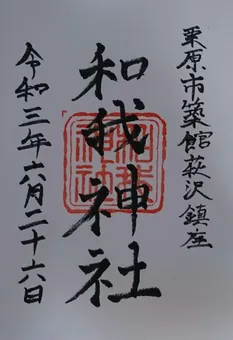 栗原市築館萩沢鎮座
和我神社
令和三年六月二十六日